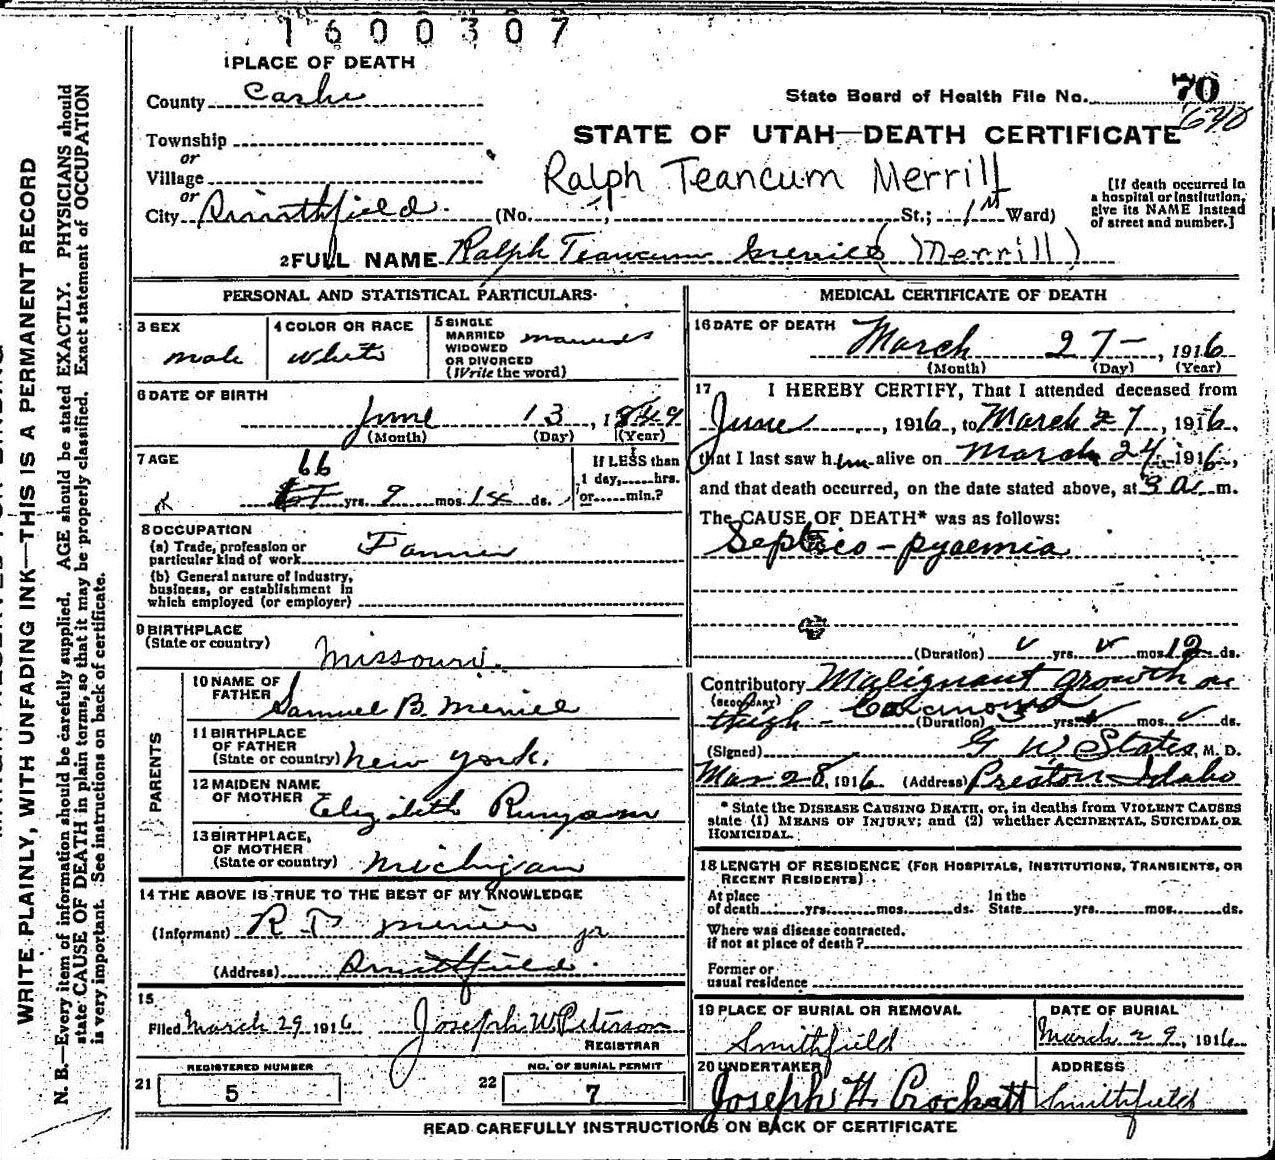 1600307
1 PLACE OF DEATH
County Cache
State Board of Health File No. 70
Township
or
STATE OF UTAH—DEATH CERTIFICATE
Village
or
Ralph Teancum Merrill
City Smithfield (No. , St.; 1st Ward)
[If death occurred in
a hospital or institution,
give its NAME instead
of street and number.]
2 FULL NAME Ralph Teancum (Merrill)
PERSONAL AND STATISTICAL PARTICULARS
3 SEX
male
4 COLOR OR RACE
White
5 SINGLE
MARRIED
WIDOWED
OR DIVORCED
(Write the word)
married
6 DATE OF BIRTH
June 13, 1849
(Month) (Day) (Year)
7 AGE
66
yrs. 9 mos. 14 ds.
If LESS than
1 day,.....hrs.
or.....min.?
8 OCCUPATION
(a) Trade, profession or
particular kind of work Farmer
(b) General nature of industry,
business, or establishment in
which employed (or employer)
9 BIRTHPLACE
(State or country) Missouri.
PARENTS
10 NAME OF
FATHER Samuel B. Merrill
11 BIRTHPLACE
OF FATHER
(State or country) New York.
12 MAIDEN NAME
OF MOTHER Elizabeth Runyam
13 BIRTHPLACE,
OF MOTHER
(State or country) Michigan
14 THE ABOVE IS TRUE TO THE BEST OF MY KNOWLEDGE
(Informant) R T Merrill jr
(Address) Smithfield.
15
Filed March 29 1916 Joseph W. Peterson
REGISTRAR
21 REGISTERED NUMBER
5
22 NO. OF BURIAL PERMIT
7
MEDICAL CERTIFICATE OF DEATH
16 DATE OF DEATH
March 27—, 1916
(Month) (Day) (Year)
17 I HEREBY CERTIFY, That I attended deceased from
June , 1916, to March 27, 1916,
that I last saw him alive on March 24, 1916,
and that death occurred, on the date stated above, at 3 a. m.
The CAUSE OF DEATH* was as follows:
Septico-pyaemia
(Duration) yrs. mos. 12 ds.
Contributory Malignant growth on
(SECONDARY)
thigh - (Duration) yrs. mos. ds.
(Signed) G W States, M. D.
Mar 28, 1916 (Address) Preston Idaho
* State the DISEASE CAUSING DEATH, or, in deaths from VIOLENT CAUSES
state (1) MEANS OF INJURY; and (2) whether ACCIDENTAL, SUICIDAL OR
HOMICIDAL.
18 LENGTH OF RESIDENCE (FOR HOSPITALS, INSTITUTIONS, TRANSIENTS, OR
RECENT RESIDENTS)
At place
of death......yrs......mos......ds.
In the
State......yrs......mos......ds.
Where was disease contracted.
if not at place of death?
Former or
usual residence
19 PLACE OF BURIAL OR REMOVAL
Smithfield
DATE OF BURIAL
March 29, 1916
20 UNDERTAKER
Joseph H. Crockatt
ADDRESS
Smithfield
READ CAREFULLY INSTRUCTIONS ON BACK OF CERTIFICATE
WRITE PLAINLY, WITH UNFADING INK—THIS IS A PERMANENT RECORD
N. B.—Every item of information should be carefully supplied. AGE should be stated EXACTLY. PHYSICIANS should
state CAUSE OF DEATH in plain terms, so that it may be properly classified. Exact statement of OCCUPATION
is very important. See instructions on back of certificate.